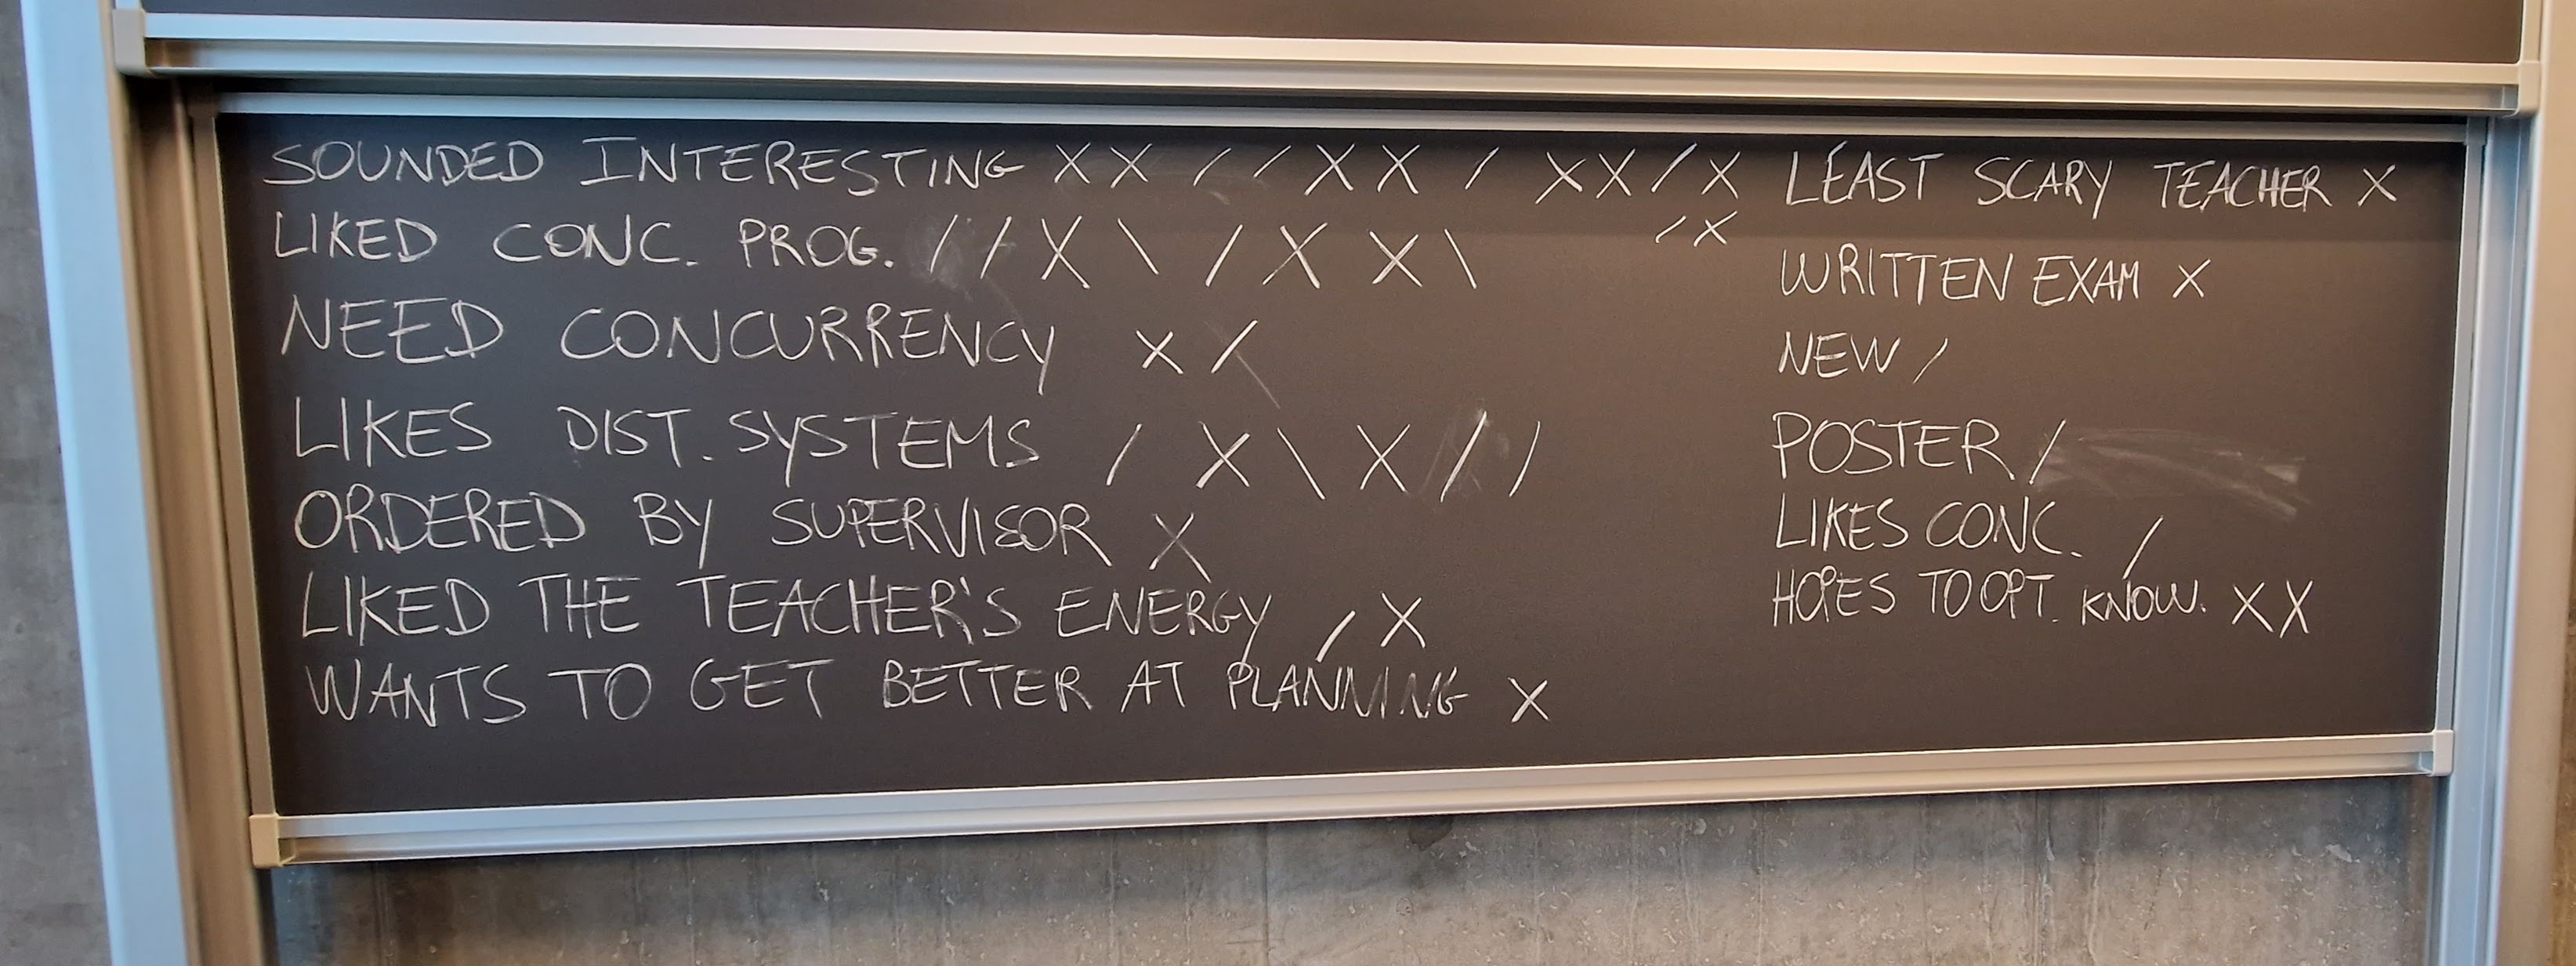 SOUNDED INTERESTING X X / / X X / X X / X
/ X
LIKED CONC. PROG. / / X \ / X X \
NEED CONCURRENCY X /
LIKES DIST. SYSTEMS / X \ X / /
ORDERED BY SUPERVISOR X
LIKED THE TEACHER'S ENERGY / X
WANTS TO GET BETTER AT PLANNING X
LEAST SCARY TEACHER X
WRITTEN EXAM X
NEW /
POSTER /
LIKES CONC. /
HOPES TO OPT. KNOW. X X